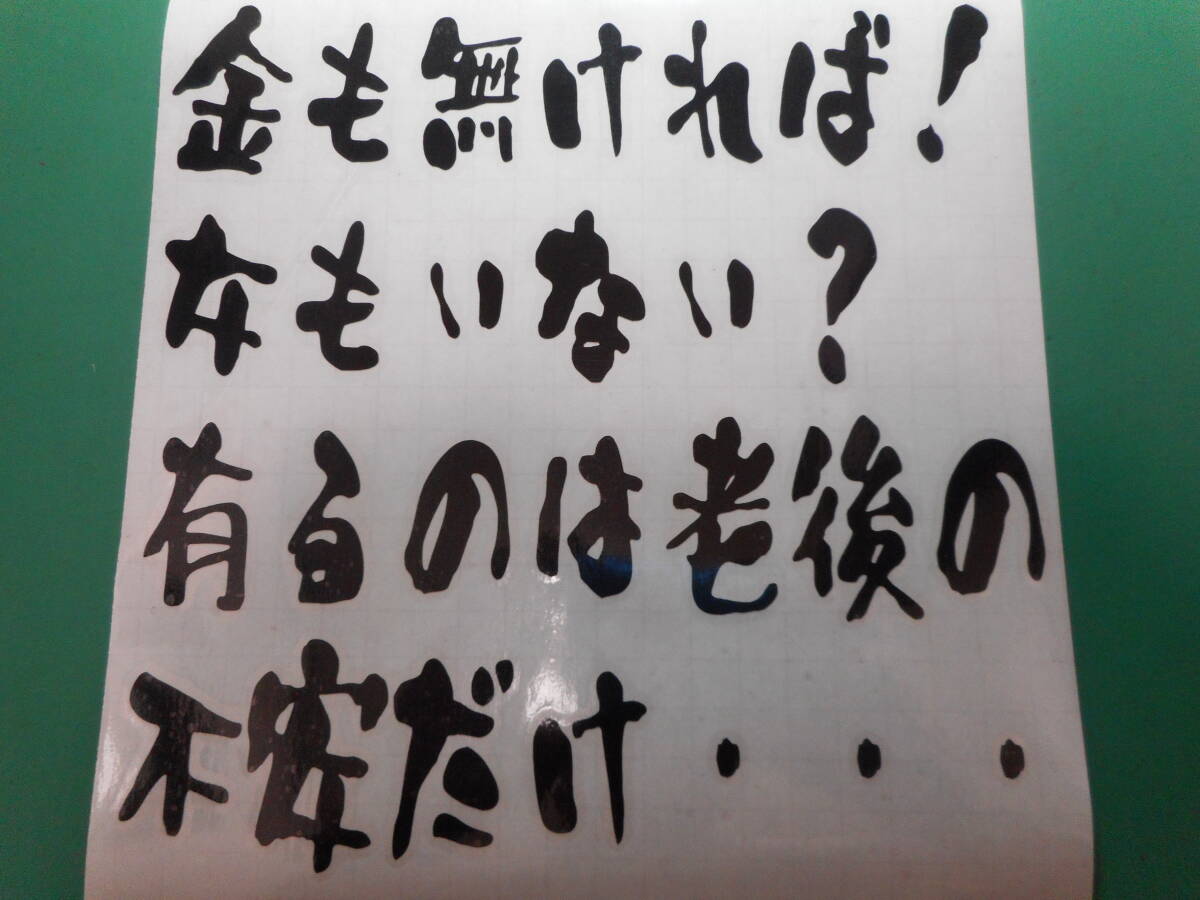 金も無ければ！
女もいない？
有るのは老後の
不安だけ・・・